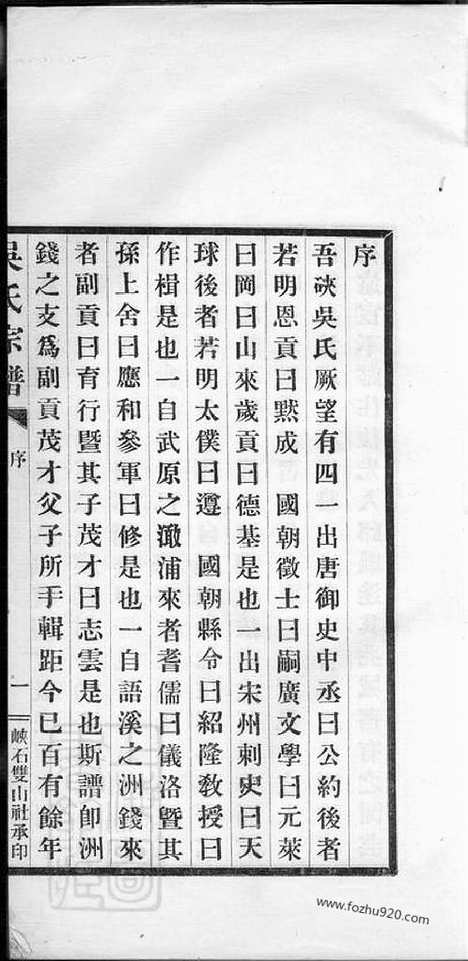 序
吾硤吳氏厥望有四一出唐御史中丞曰公約後者
若明恩貢曰黙成　國朝徵士曰嗣廣文學曰元萊
曰岡曰山來歲貢曰德基是也一出宋州刺史曰天
球後者若明太僕曰遵　國朝縣令曰紹隆敎授曰
作楫是也一自武原之澉浦來者耆儒曰儀洛暨其
孫上舍曰應和參軍曰修是也一自語溪之洲錢來
者副貢曰育行暨其子茂才曰志雲是也斯譜卽洲
錢之支爲副貢茂才父子所手輯距今已百有餘年
吳氏宗譜
序
一
峽石雙山社承印
www.fozhu920.com